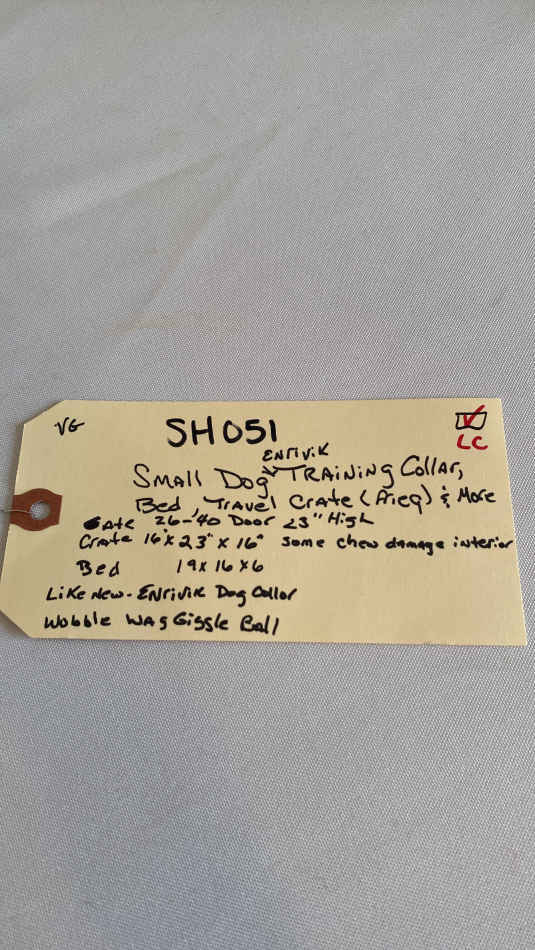 VG
SH051
LC
ENRIVIK
SMALL DOG TRAINING COLLAR,
BED TRAVEL CRATE (Aieq) & MORE
Gate 26-40 Door 23" High
Crate 16" x 23" x 16" Some chew damage interior
Bed 19 x 16 x 6
Like New - ENRIVIK Dog Collar
Wobble Wag Giggle Ball